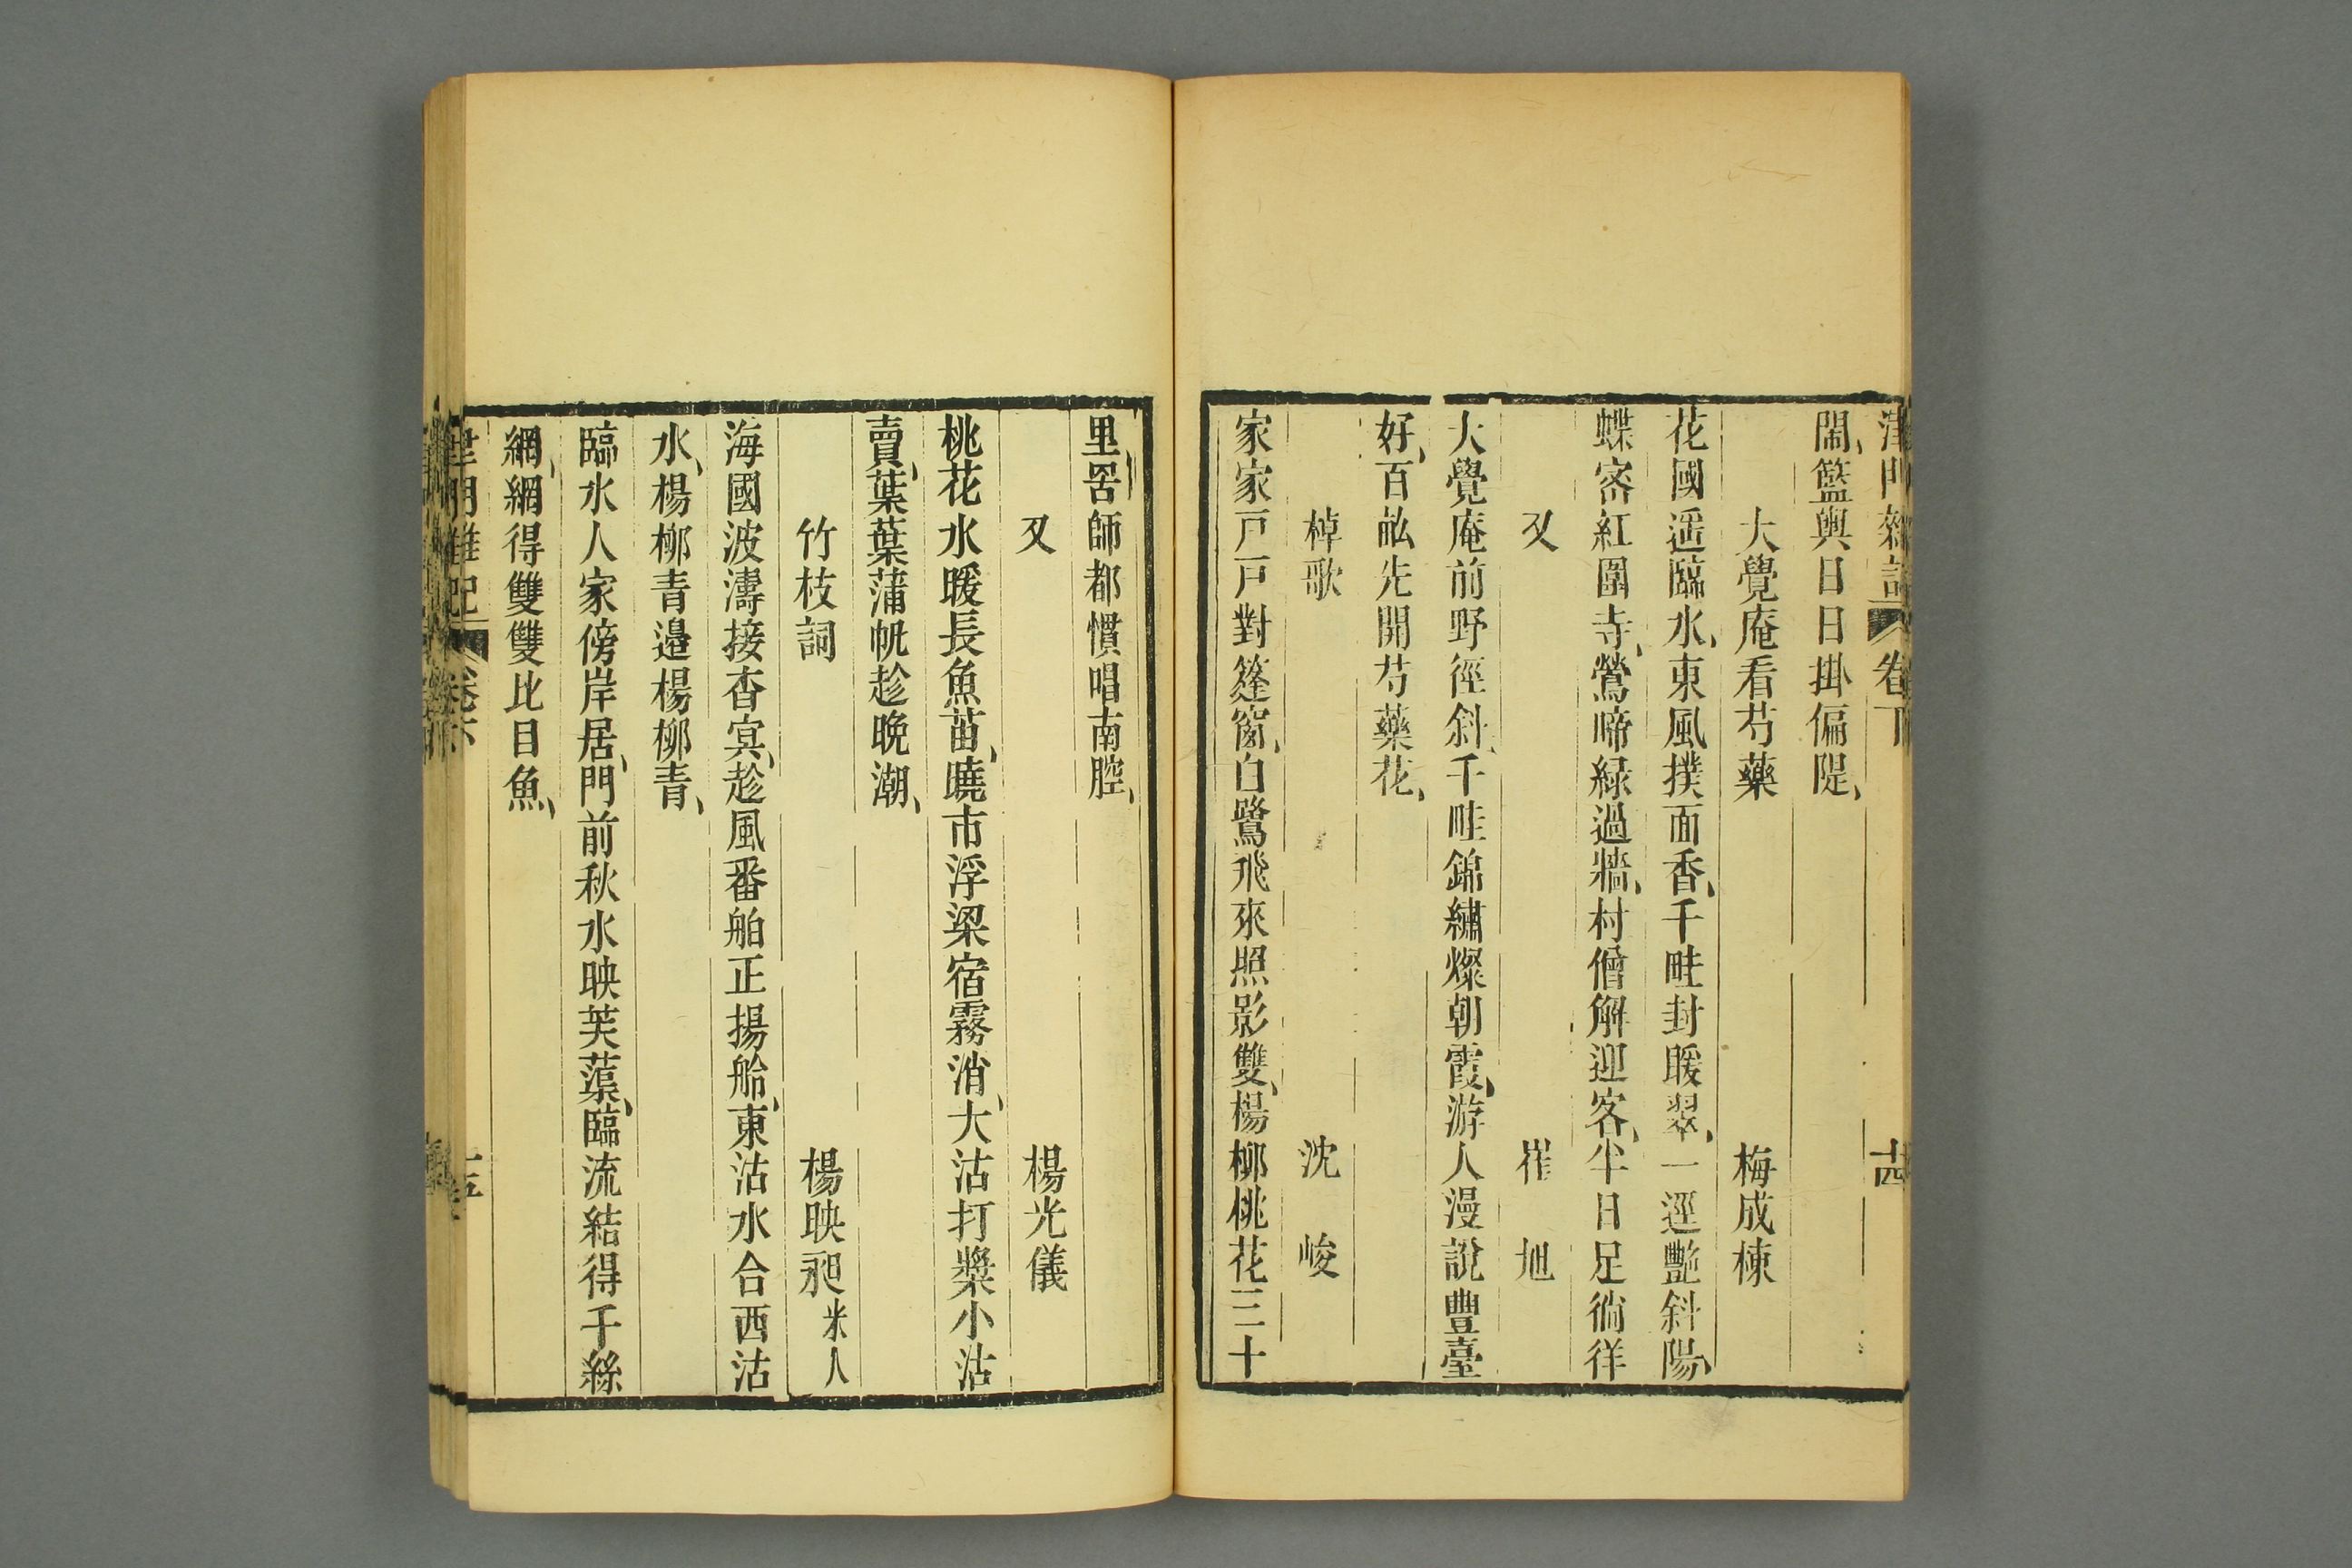 津門雜記 卷下 十四
閙、籃輿日日掛偏隄、
大覺庵看芍藥 梅成棟
花國遥臨水、東風撲面香、千畦封暖翠、一逕艷斜陽、
蝶密紅圍寺、鶯啼緑過牆、村僧解迎客、半日足徜徉
又 崔旭
大覺庵前野徑斜、千畦錦繡燦朝霞、游人漫說豐臺
好、百畝先開芍藥花、
棹歌 沈峻
家家戸戸對篷窗、白鷺飛來照影雙、楊柳桃花三十
里、罟師都慣唱南腔、
又 楊光儀
桃花水暖長魚苗、曉市浮梁宿霧消、大沽打槳小沽
賣、葉葉蒲帆趁晚潮、
竹枝詞 楊映昶 米人
海國波濤接杳冥、趁風番舶正揚舲、東沽水合西沽
水、楊柳青邉楊柳青、
臨水人家傍岸居、門前秋水映芙蕖、臨流結得千絲
網、網得雙雙比目魚、
津門雜記 卷下 十五